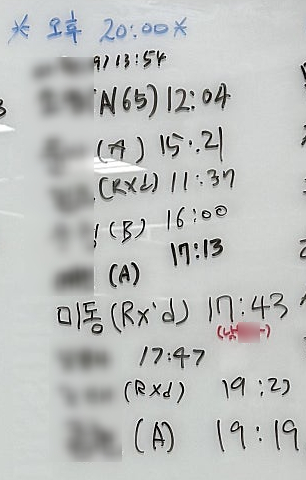 * 오후 20:00 *
9) 13:54
A(65) 12:04
(A) 15:21
(Rxd) 11:37
(B) 16:00
(A) 17:13
미동 (Rx'd) 17:43
17:47
(Rxd) 19:2)
(A) 19:19